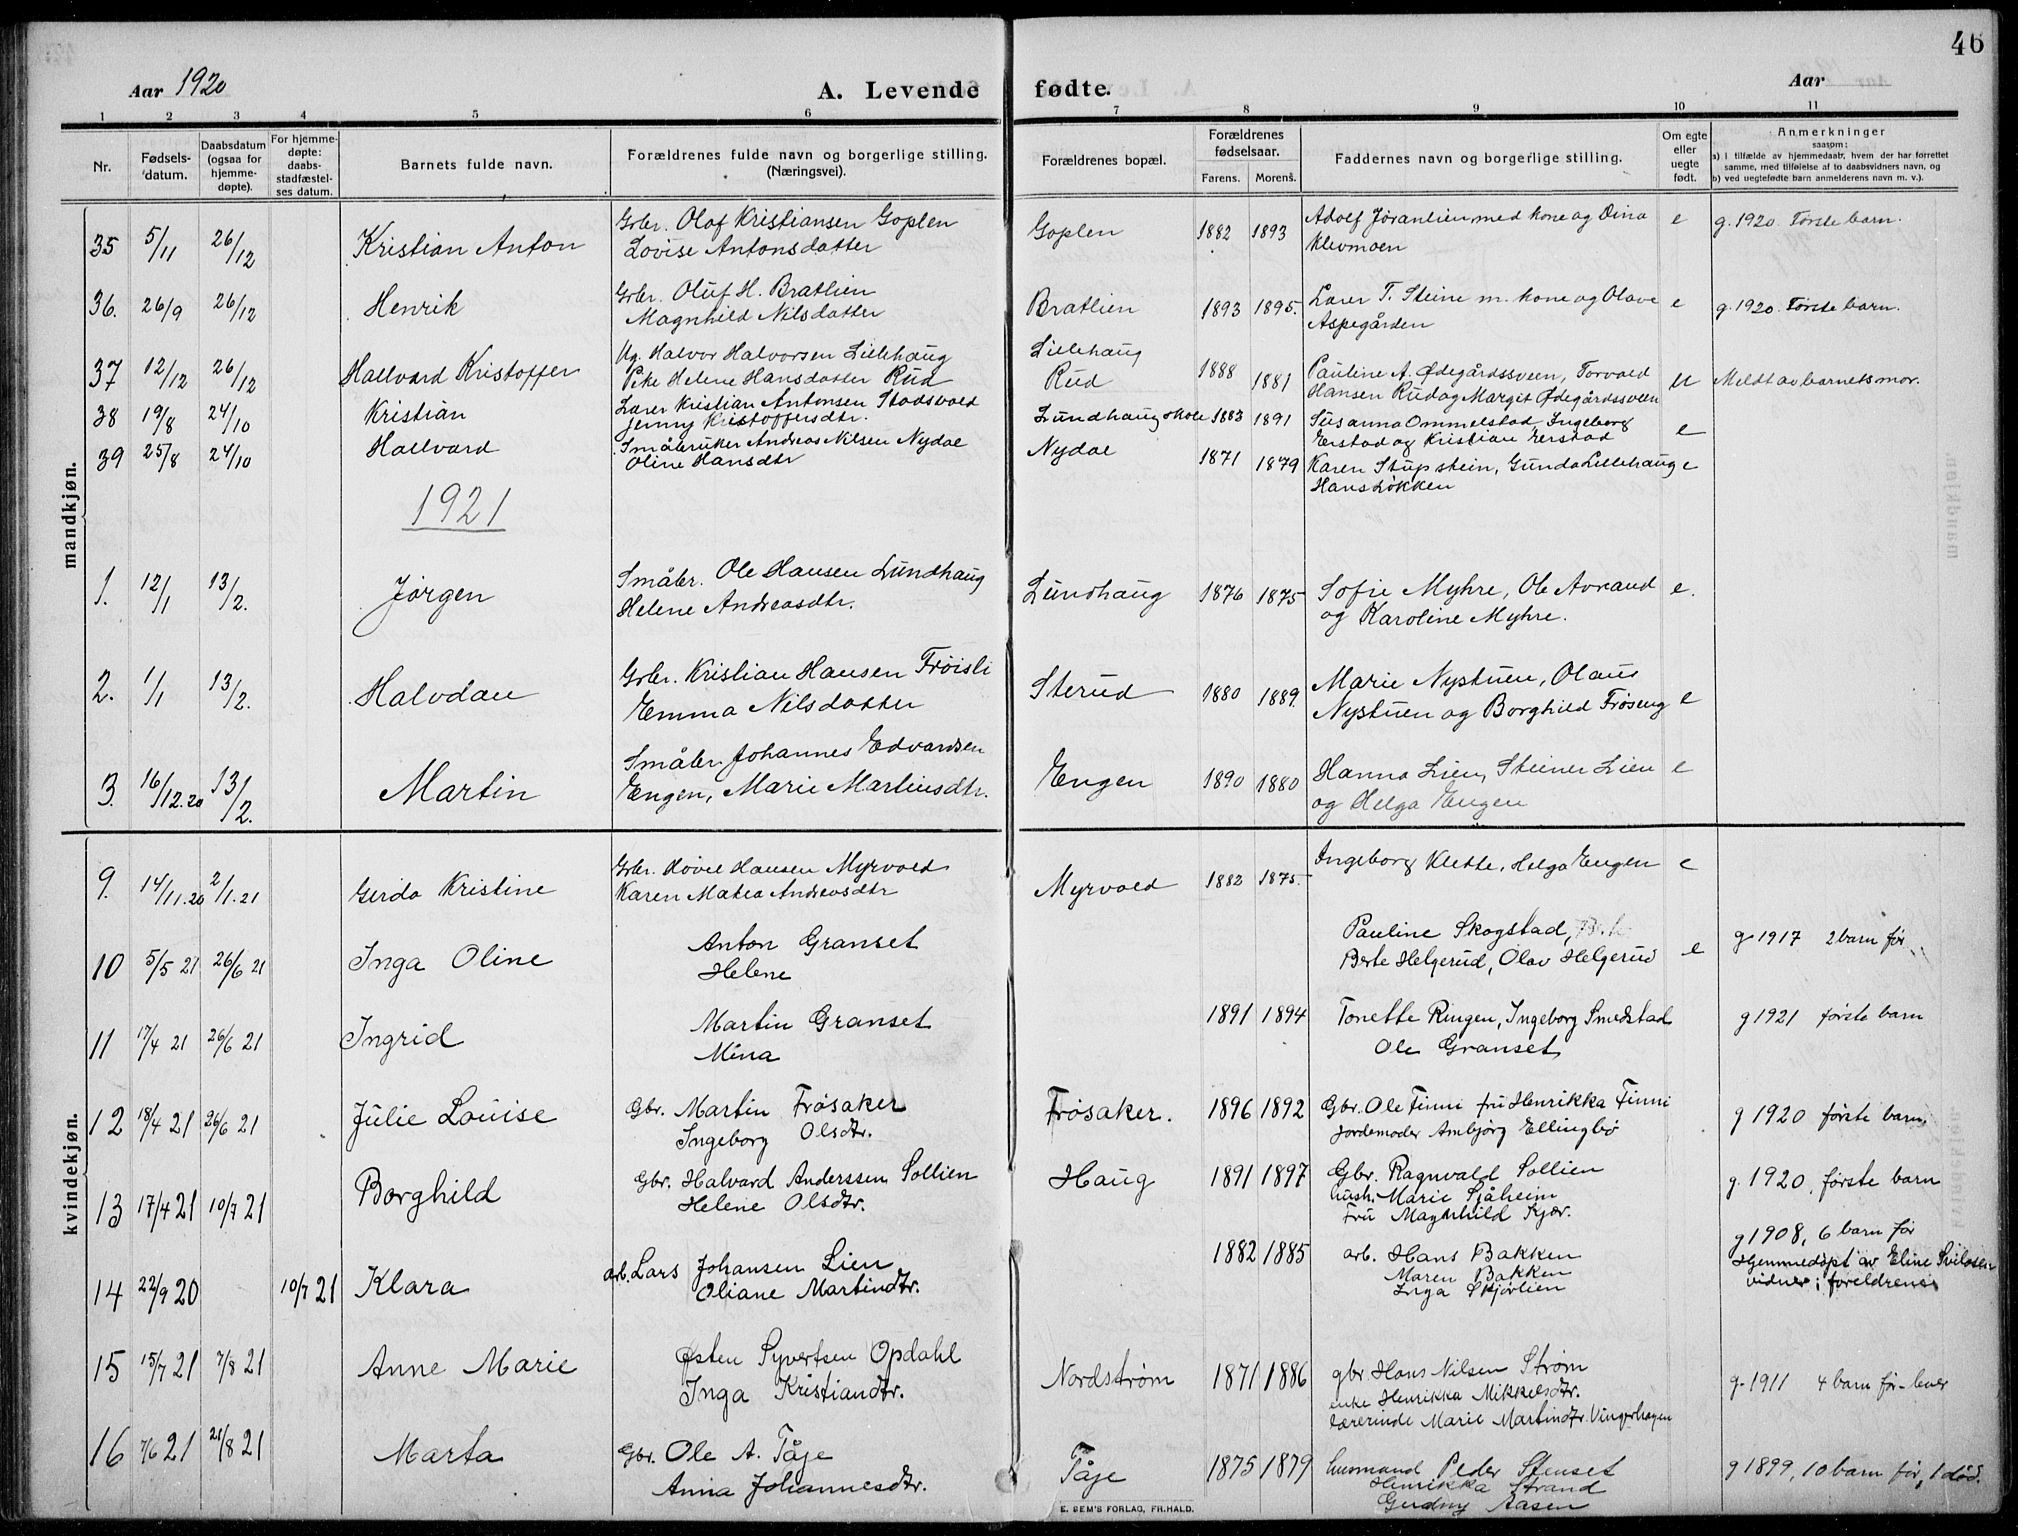 46
Aar 1920
A. Levende fødte.
Aar
1 2 3 4 5 6 7 8 9 10 11
Nr.
Fødsels-datum.
Daabsdatum (ogsaa for hjemme-døpte).
For hjemme-døpte: daabs-stadfæstel-ses datum.
Barnets fulde navn.
Forældrenes fulde navn og borgerlige stilling. (Næringsvei).
Forældrenes bopæl.
Forældrenes fødselsaar.
Farens. Morens.
Faddernes navn og borgerlige stilling.
Om egte eller uegte født.
Anmerkninger
saasom:
a) i tilfælde av hjemmedaab, hvem der har forrettet
samme, med tilføielse af to daabsvidners navn, og
b) ved uegtefødte barn anmelderens navn m. v.).
mandkjøn.
35 5/11 26/12 Kristian Anton
Grbr. Olaf Kristiansen Goplen
Lovise Antonsdatter
Goplen 1882 1893
Adolf Jøranlien med kone og Dina
Klevmoen
e g. 1920. Første barn.
36. 26/9 26/12 Henrik
Grbr. Oluf H. Bratlien
Magnhild Nilsdatter
Bratlien 1893 1895.
Lærer T. Steine m. kone og Olave
Aspegården
e g. 1920. Første barn.
37 12/12 26/12 Hallvard Kristoffer
Ug. Halvor Halvorsen Lillehaug
Pike Helene Hansdatter Rud
Lillehaug
Rud
1888 1881
Pauline A. Ødegårdssveen, Torvald
Hansen Rud og Margit Ødegårdssveen
u Meldt av barnets mor.
38 19/8 24/10 Kristian
Lærer Kristian Antonsen Stadsvold
Jenny Kristoffersdtr.
Lundhaug skole 1883 1891
Susanna Ommelstad, Ingeborg
Erstad og Kristian Erstad
e
39 25/8 24/10 Hallvard
Småbruker Andreas Nilsen Nydal
Oline Hansdtr
Nydal 1871 1879
Karen Stupstein, Gunda Lillehaug
Hans Løkken
e
1921
1. 12/1 13/2. Jørgen
Småbr. Ole Hansen Lundhaug
Helene Andreasdtr.
Lundhaug 1876 1875
Sofie Myhre, Ole Avrand
og Karoline Myhre.
e.
2. 1/1 13/2. Halvdan
Grbr. Kristian Hansen Frøisli
Emma Nilsdatter
Sterud 1880 1889.
Marie Nystuen, Olaus
Nystuen og Borghild Frøseng
e
3. 16/12.20 13/2. Martin
Småbr. Johannes Edvardsen
Engen, Marie Martinsdtr.
Engen 1890 1880
Hanna Lien, Steiner Lien
og Helga Engen
e
kvindekjøn.
9. 14/11.20 2/1.21 Gerda Kristine
Grbr. Hovel Hansen Myrvold
Karen Matea Andreasdtr
Myrvold 1882 1875.
Ingeborg Klette, Helga Engen
e
10 5/5 21 26/6 21 Inga Oline
Anton Granset
Helene
Pauline Skogstad,
Berte Helgerud, Olav Helgerud
e g 1917 2 barn før
11 17/4 21 26/6 21 Ingrid
Martin Granset
Mina
1891 1894
Tonette Ringen, Ingeborg Smedstad
Ole Granset
g 1921 første barn
12 18/4 21 26/6 21 Julie Louise
Gbr. Martin Frøsaker
Ingeborg Olsdtr.
Frøsaker. 1896 1892
Gbr. Ole Finni fru Henrikka Finni
Jordemoder Ambjørg Ellingbø
g 1920 første barn.
13 17/4 21 10/7 21 Borghild
Gbr. Halvard Anderssen Sollien
Helene Olsdtr.
Haug 1891 1897
Gbr. Ragnvald Sollien
hush. Marie Sjåheim
Fru Magnhild Kjær.
g. 1920, første barn
14 22/9 20 10/7 21 Klara
arb. Lars Johansen Lien
Oliane Martindtr.
1882 1885
arb. Hans Bakken
Maren Bakken
Inga Skjørlien
g 1908, 6 barn før
Hjemmedøpt av Eline Sviløsen
vidner; foreldrene
15 15/7 21 7/8 21 Anne Marie
Østen Syvertsen Opdahl
Inga Kristiandtr.
Nordstrøm 1871 1886
gbr Hans Nilsen Strøm
enke Henrikka Mikkelsdtr.
lærerinde Marie Martindtr. Vingerhagen
g. 1911 4 barn før - lever
16 7/6 21 21/8 21 Marta
Gbr. Ole A. Tåje
Anna Johannesdtr.
Tåje 1875 1879
husmand Peder Stenset
Henrikka Strand
Gudny Aasen
g 1899, 10 barn før, 1 død.
E. SEM'S FORLAG, FR.HALD.